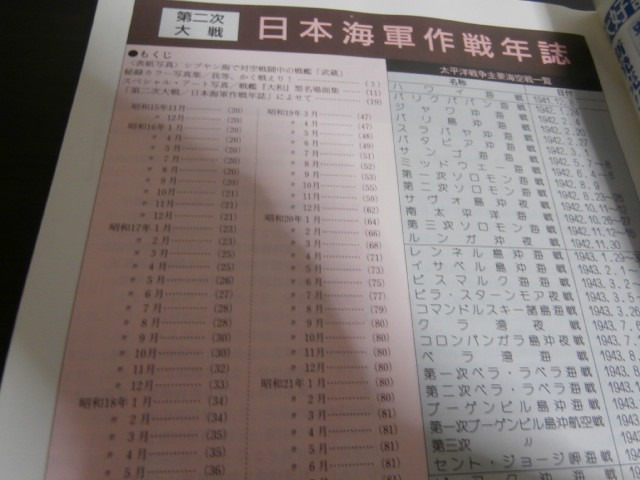 第二次
大戦
日本海軍作戦年誌
●もくじ
〈表紙写真〉シブヤン海で対空戦闘中の戦艦「武蔵」
秘録カラー写真集／我等、かく戦えり！…………(2)
スペシャル・アート写真／戦艦『大和』型名場面集……(11)
「第二次大戦／日本海軍作戦年誌」によせて…………(19)
昭和15年11月…………(20)
〃 12月…………(20)
昭和16年1月…………(20)
〃 4月…………(20)
〃 5月…………(20)
〃 7月…………(20)
〃 8月…………(20)
〃 9月…………(20)
〃 10月…………(21)
〃 11月…………(21)
〃 12月…………(21)
昭和17年1月…………(23)
〃 2月…………(23)
〃 3月…………(25)
〃 4月…………(25)
〃 5月…………(26)
〃 6月…………(27)
〃 7月…………(28)
〃 8月…………(28)
〃 9月…………(30)
〃 10月…………(30)
〃 11月…………(32)
〃 12月…………(33)
昭和18年1月…………(34)
〃 2月…………(34)
〃 3月…………(35)
〃 4月…………(35)
〃 5月…………(36)
昭和19年3月…………(47)
〃 4月…………(47)
〃 5月…………(48)
〃 6月…………(49)
〃 7月…………(51)
〃 8月…………(52)
〃 9月…………(53)
〃 10月…………(55)
〃 11月…………(59)
〃 12月…………(62)
昭和20年1月…………(64)
〃 2月…………(66)
〃 3月…………(68)
〃 4月…………(71)
〃 5月…………(73)
〃 6月…………(75)
〃 7月…………(77)
〃 8月…………(79)
〃 9月…………(80)
〃 10月…………(80)
〃 11月…………(80)
〃 12月…………(80)
昭和21年1月…………(80)
〃 2月…………(80)
〃 3月…………(81)
〃 4月…………(81)
〃 5月…………(81)
〃 6月…………(81)
太平洋戦争主要海空戦一覧
名称 日付
ジャワ沖海戦 1942.2.4
バリ島沖海戦 1942.2.20
スラバヤ沖海戦 1942.2.27
バタビア沖海戦
サンゴ海海戦 1942.5.7―8
ミッドウェー海戦
第一次ソロモン海戦 1942.8.9
第二次ソロモン海戦
サヴォ島沖夜戦
南太平洋海戦 1942.10.26
第三次ソロモン海戦
ルンガ沖夜戦 1942.11.30
レンネル島沖海戦 1943.1.29
イサベル島沖海戦 1943.2.1
ビスマルク海海戦 1943.3.
ビラ・スターンモア夜戦 1943.3.5
コマンドルスキー諸島海戦 1943.3.
クラ湾夜戦 1943.7.
コロンバンガラ島沖夜戦 1943.7.1
ベラ湾海戦 1943.8.
第一次ベラ・ラベラ海戦 1943.8
第二次ベラ・ラベラ海戦 1943.
ブーゲンビル島沖海戦 1943.
第一次ブーゲンビル島沖航空戦 1943.
第三次 〃 1943.
セント・ジョージ岬海戦 1943.